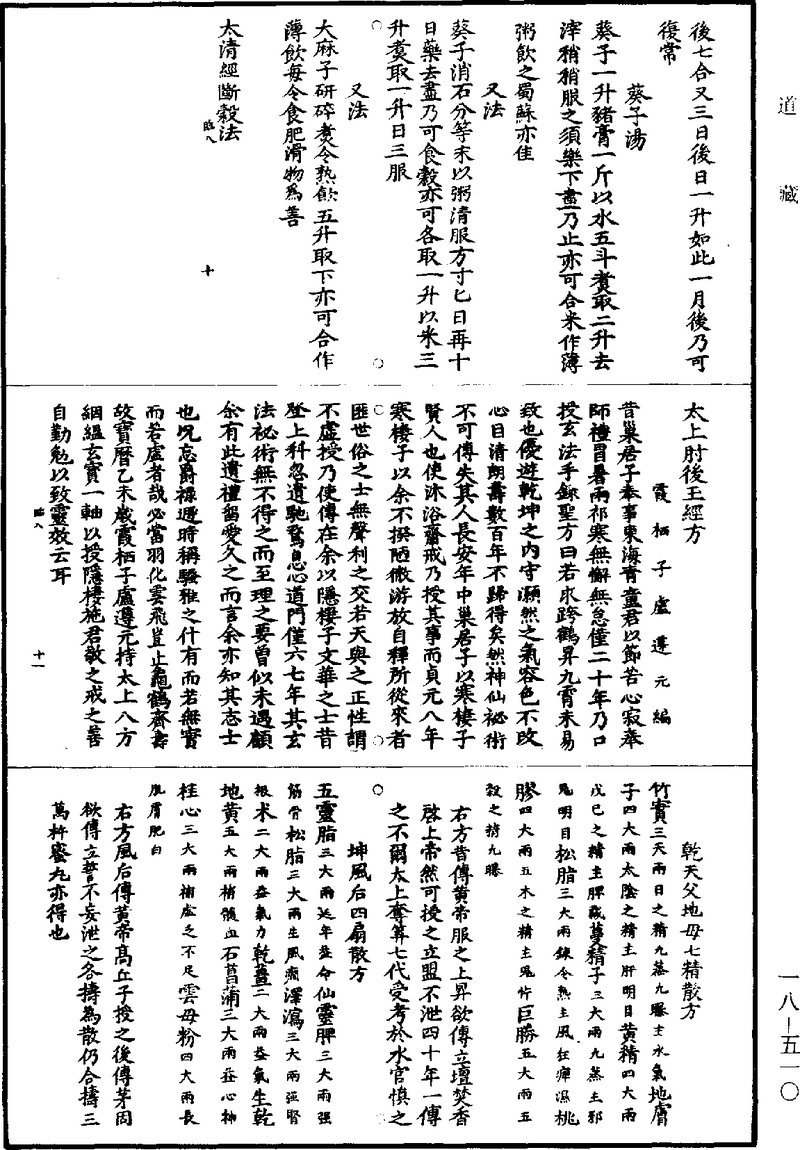 道藏
後七合又三日後日一升如此一月後乃可
復常
葵子湯
葵子一升猪膏一斤以水五斗煑取二升去
滓稍稍服之須藥下盡乃止亦可合米作薄
粥飲之蜀蘇亦佳
又法
葵子消石分等末以粥清服方寸匕日再十
日藥去盡乃可食穀亦可各取一升以米三
升煑取一升日三服
又法
大麻子研碎煑令熟飲五升取下亦可合作
薄飲每令食肥滑物爲善
太清經斷穀法
臨八 十
太上肘後玉經方
霞栖子盧遵元編
昔巢居子奉事東海青童君以節苦心寂奉
師禮冒暑雨祁寒無懈無怠僅二十年乃口
授玄法手錄聖方曰若求跨鶴昇九霄未易
致也優遊乾坤之內守灝然之氣容色不改
心目清朗壽數百年不歸得矣然神仙祕術
不可傳失其人長安年中巢居子以寒棲子
賢人也使沐浴齋戒乃授其事而貞元八年
寒棲子以余不揆陋微游放自釋所從來者
匪世俗之士無聲利之交若天與之正性謂
不虛授乃使傳在余以隱棲子文華之士昔
登上科忽遺馳騖息心道門僅六七年其玄
法祕術無不得之而至理之要曾似未遇顧
余有此遺禮留愛久之而言余亦知其志士
也况忘爵祿遯時稱騷雅之什有而若無實
而若虛者哉必當羽化雲飛豈止龜鶴齊壽
故寶曆乙未歲霞栖子盧遵元持太上八方
絪緼玄實一軸以授隱棲施君敬之戒之善
自勤勉以致靈效云耳
臨八 十一
乾天父地母七精散方
竹實三大兩日之精九蒸九曝主水氣地膚
子四大兩太陰之精主肝明目黃精四大兩
戊巳之精主脾臟蔓精子三大兩九蒸主邪
鬼明目松脂三大兩鍊令熟主風狂痹濕桃
膠四大兩五木之精主鬼忤巨勝五大兩五
穀之精九曝
右方昔傳黃帝服之上昇欲傳立壇焚香
啓上帝然可授之立盟不泄四十年一傳
之不爾太上奪筭七代受考於水官慎之
坤風后四扇散方
五靈脂三大兩延年益命仙靈脾三大兩强
筋骨松脂三大兩主風癇澤瀉三大兩强腎
根术二大兩益氣力乾薑二大兩益氣生乾
地黃五大兩補髓血石菖蒲三大兩益心神
桂心三大兩補虛乏不足雲母粉四大兩長
肌膚肥白
右方風后傳黃帝高丘子授之後傳茅固
欲傳立誓不妄泄之各擣為散仍合擣三
萬杵蜜丸亦得也
一八—五一〇